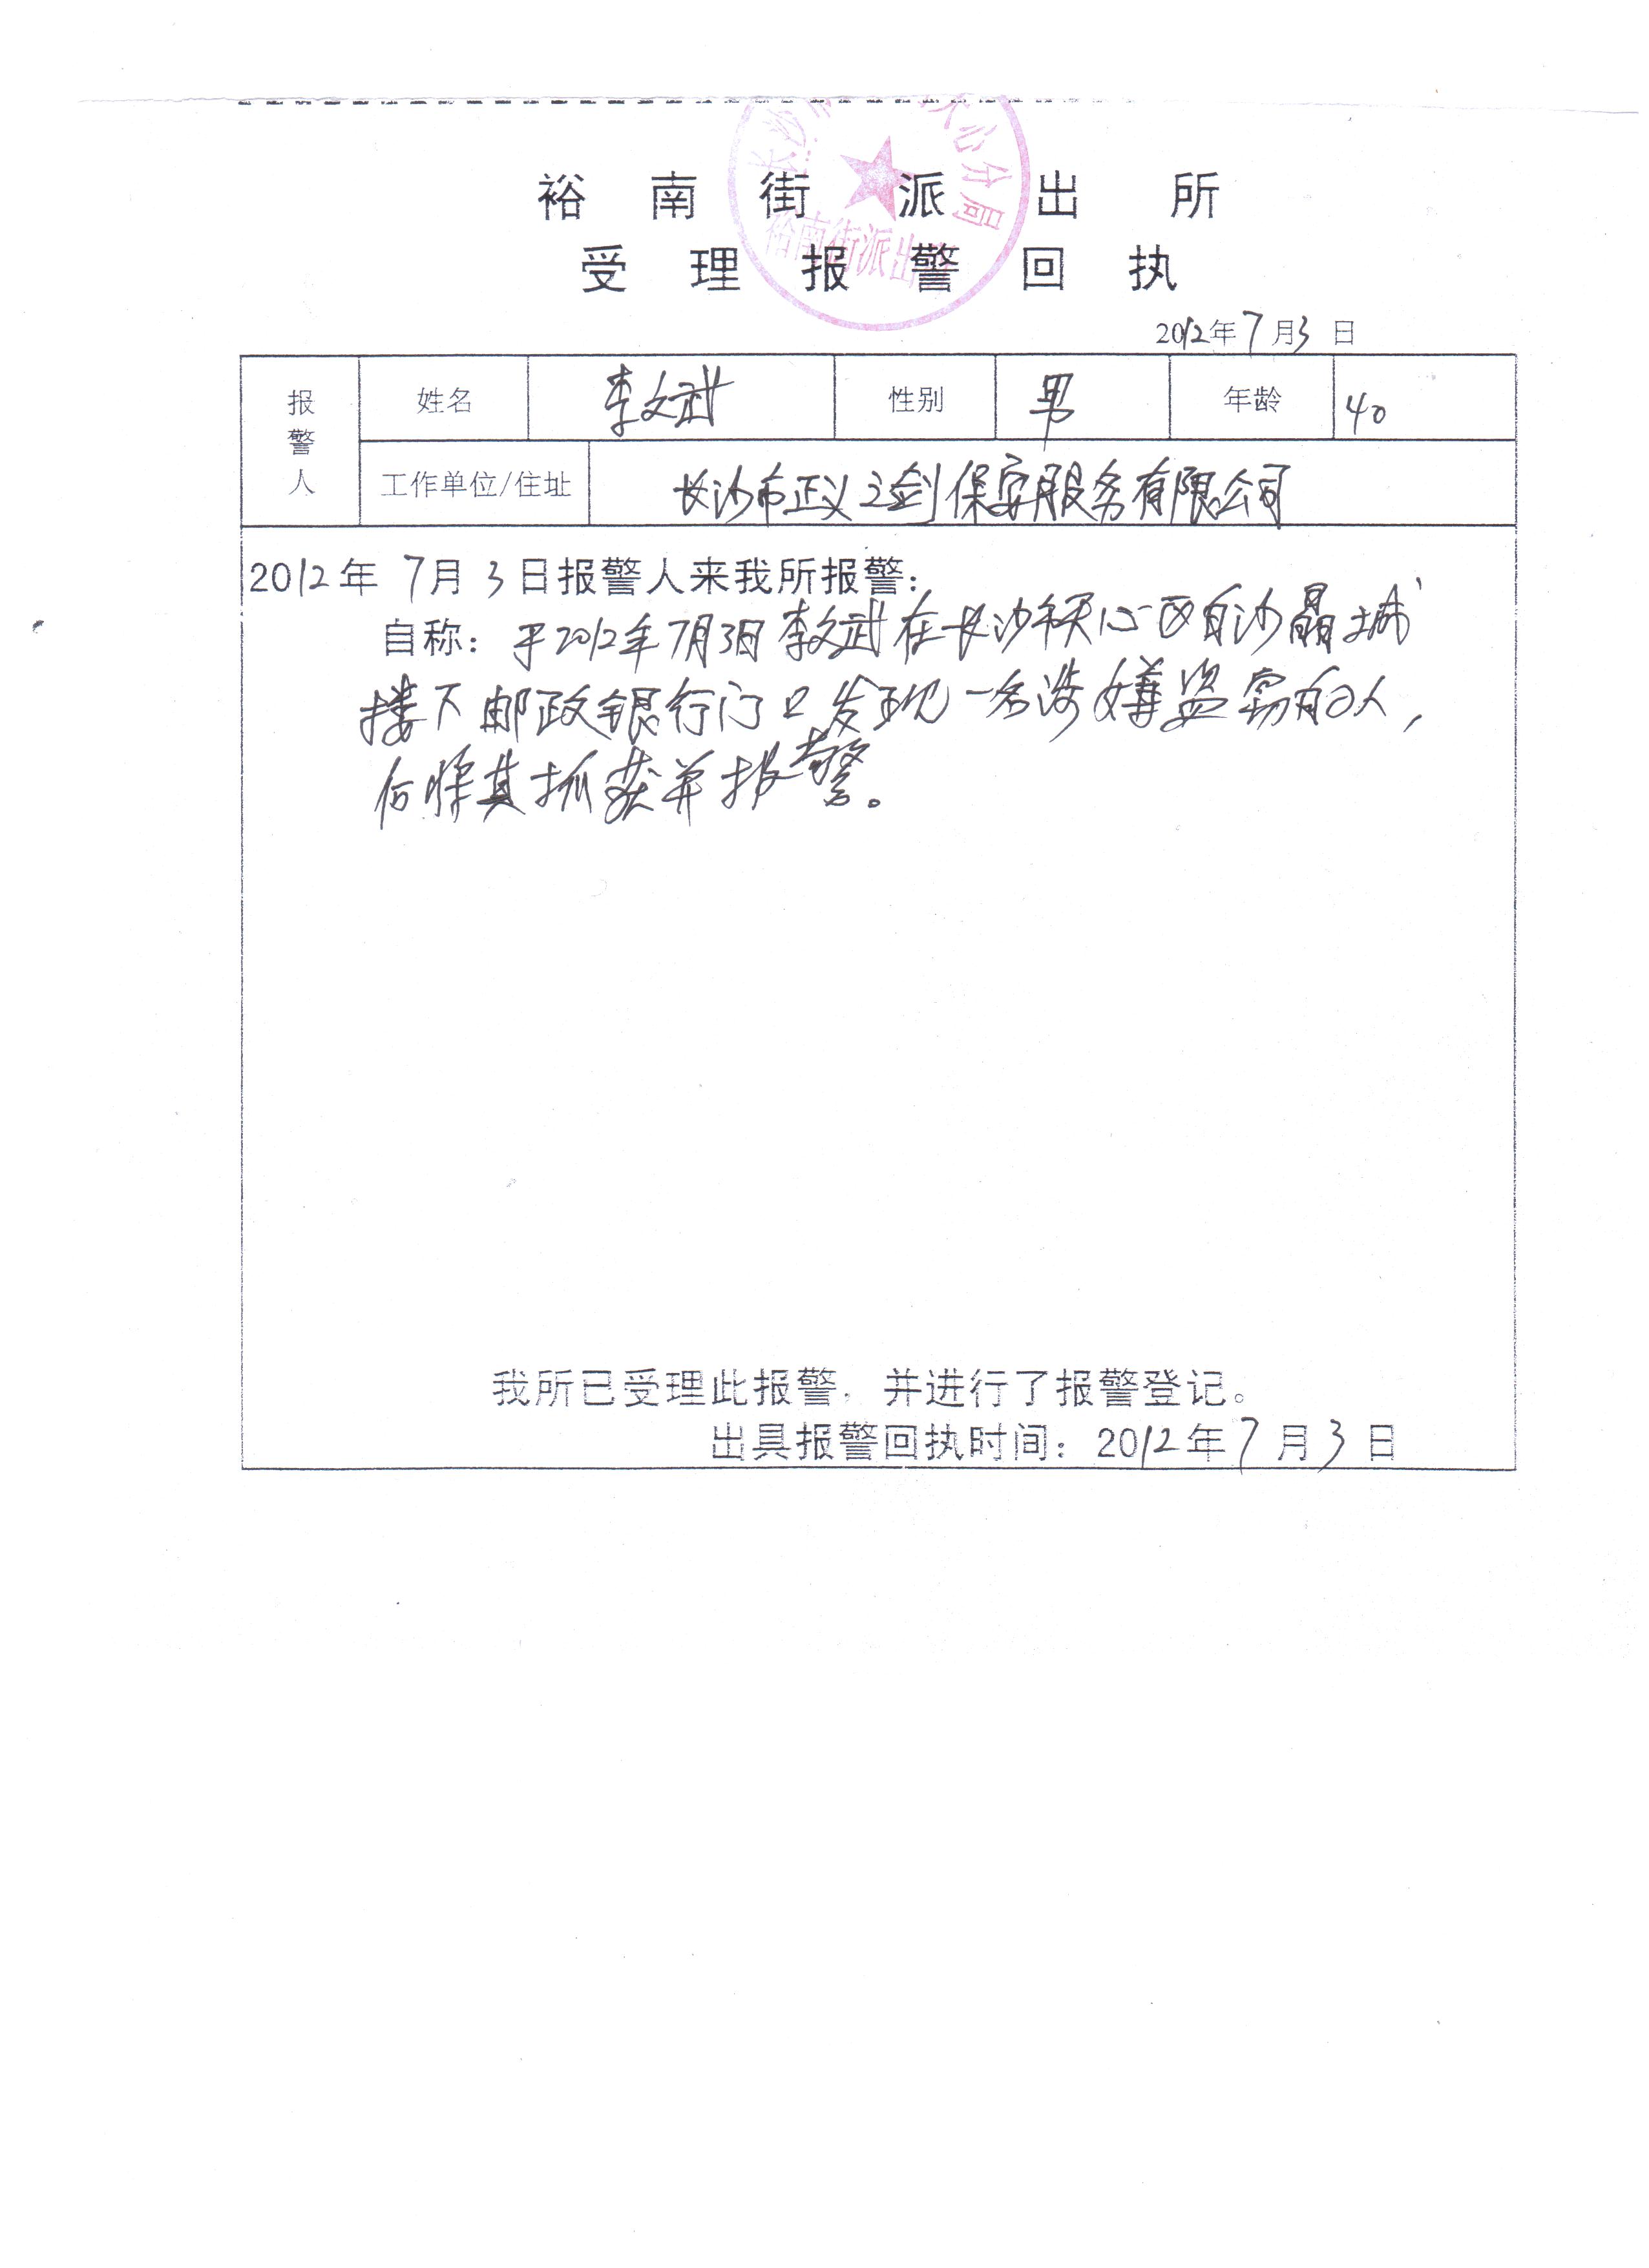 长沙 天心分局
裕南街派出
裕南街派出所
受理报警回执
2012年7月3日
报警人 姓名 李文武 性别 男 年龄 40
工作单位/住址 长沙市正义之剑保安服务有限公司
2012年7月3日报警人来我所报警:
自称:于2012年7月3日李文武在长沙市天心区白沙晶城
楼下邮政银行门口发现一名涉嫌盗窃的人,
后将其抓获并报警。
我所已受理此报警,并进行了报警登记。
出具报警回执时间:2012年7月3日